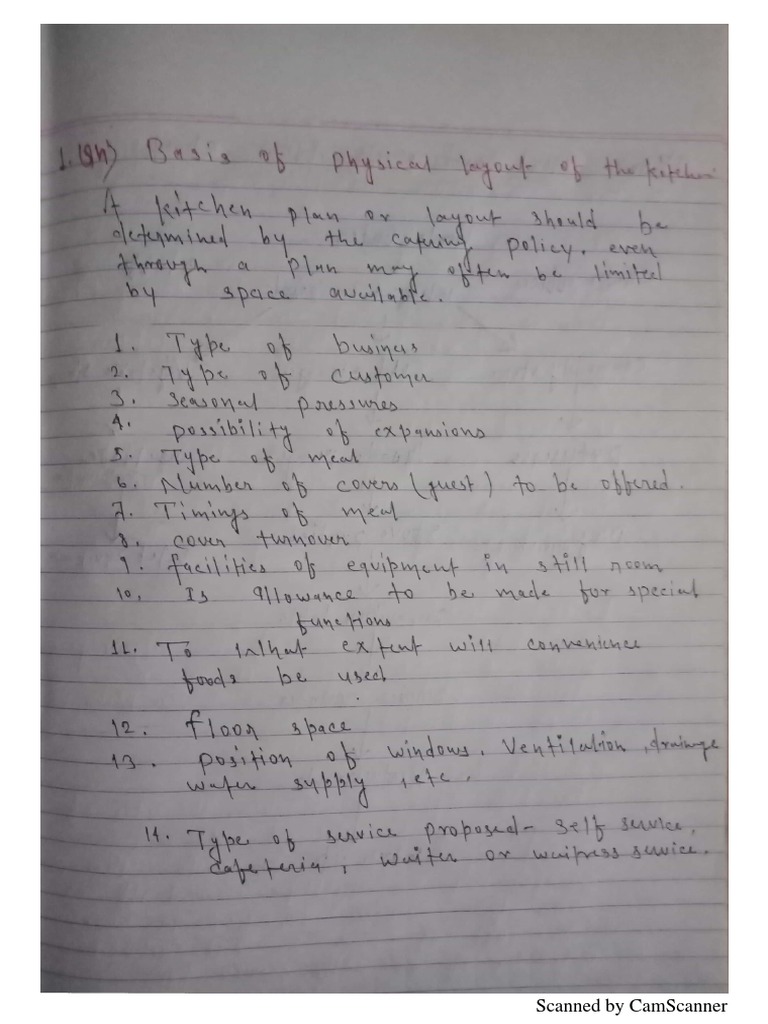 1.Qn) Basis of physical layout of the kitchen
A kitchen plan or layout should be
determined by the catering policy, even
through a plan may often be limited
by space available.
1. Type of business
2. Type of customer
3. Seasonal pressures
4. possibility of expansions
5. Type of meal
6. Number of covers (guest) to be offered.
7. Timings of meal
8. cover turnover
9. facilities of equipment in still room
10. Is allowance to be made for special
functions
11. To What extent will convenience
foods be used
12. floor space
13. position of windows, Ventilation, drainage
water supply, etc.
14. Type of service proposed - self service,
cafeteria, waiter or waitress service.
Scanned by CamScanner